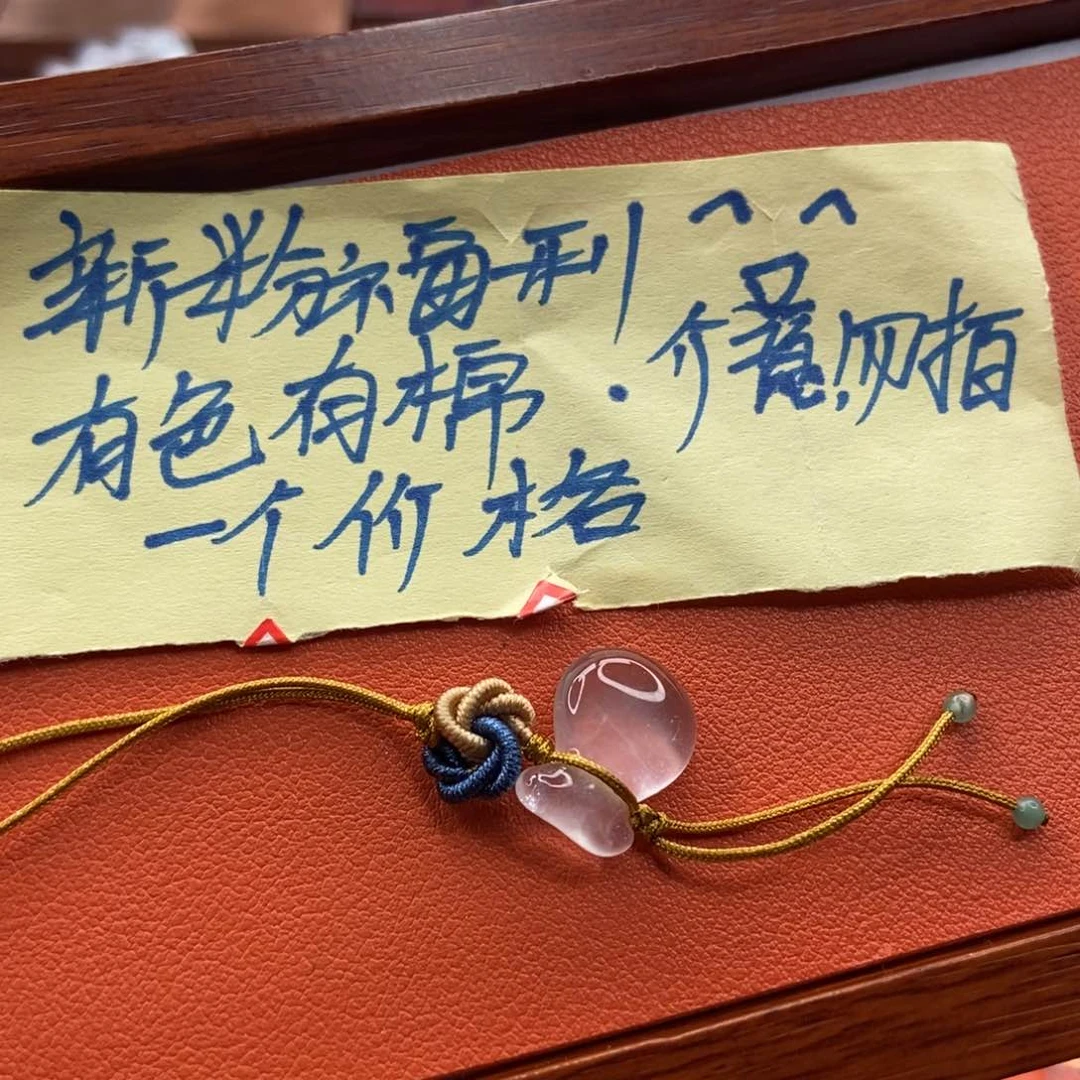 新粉福利 ^^
有色有棉 . 介意勿拍
一个价格